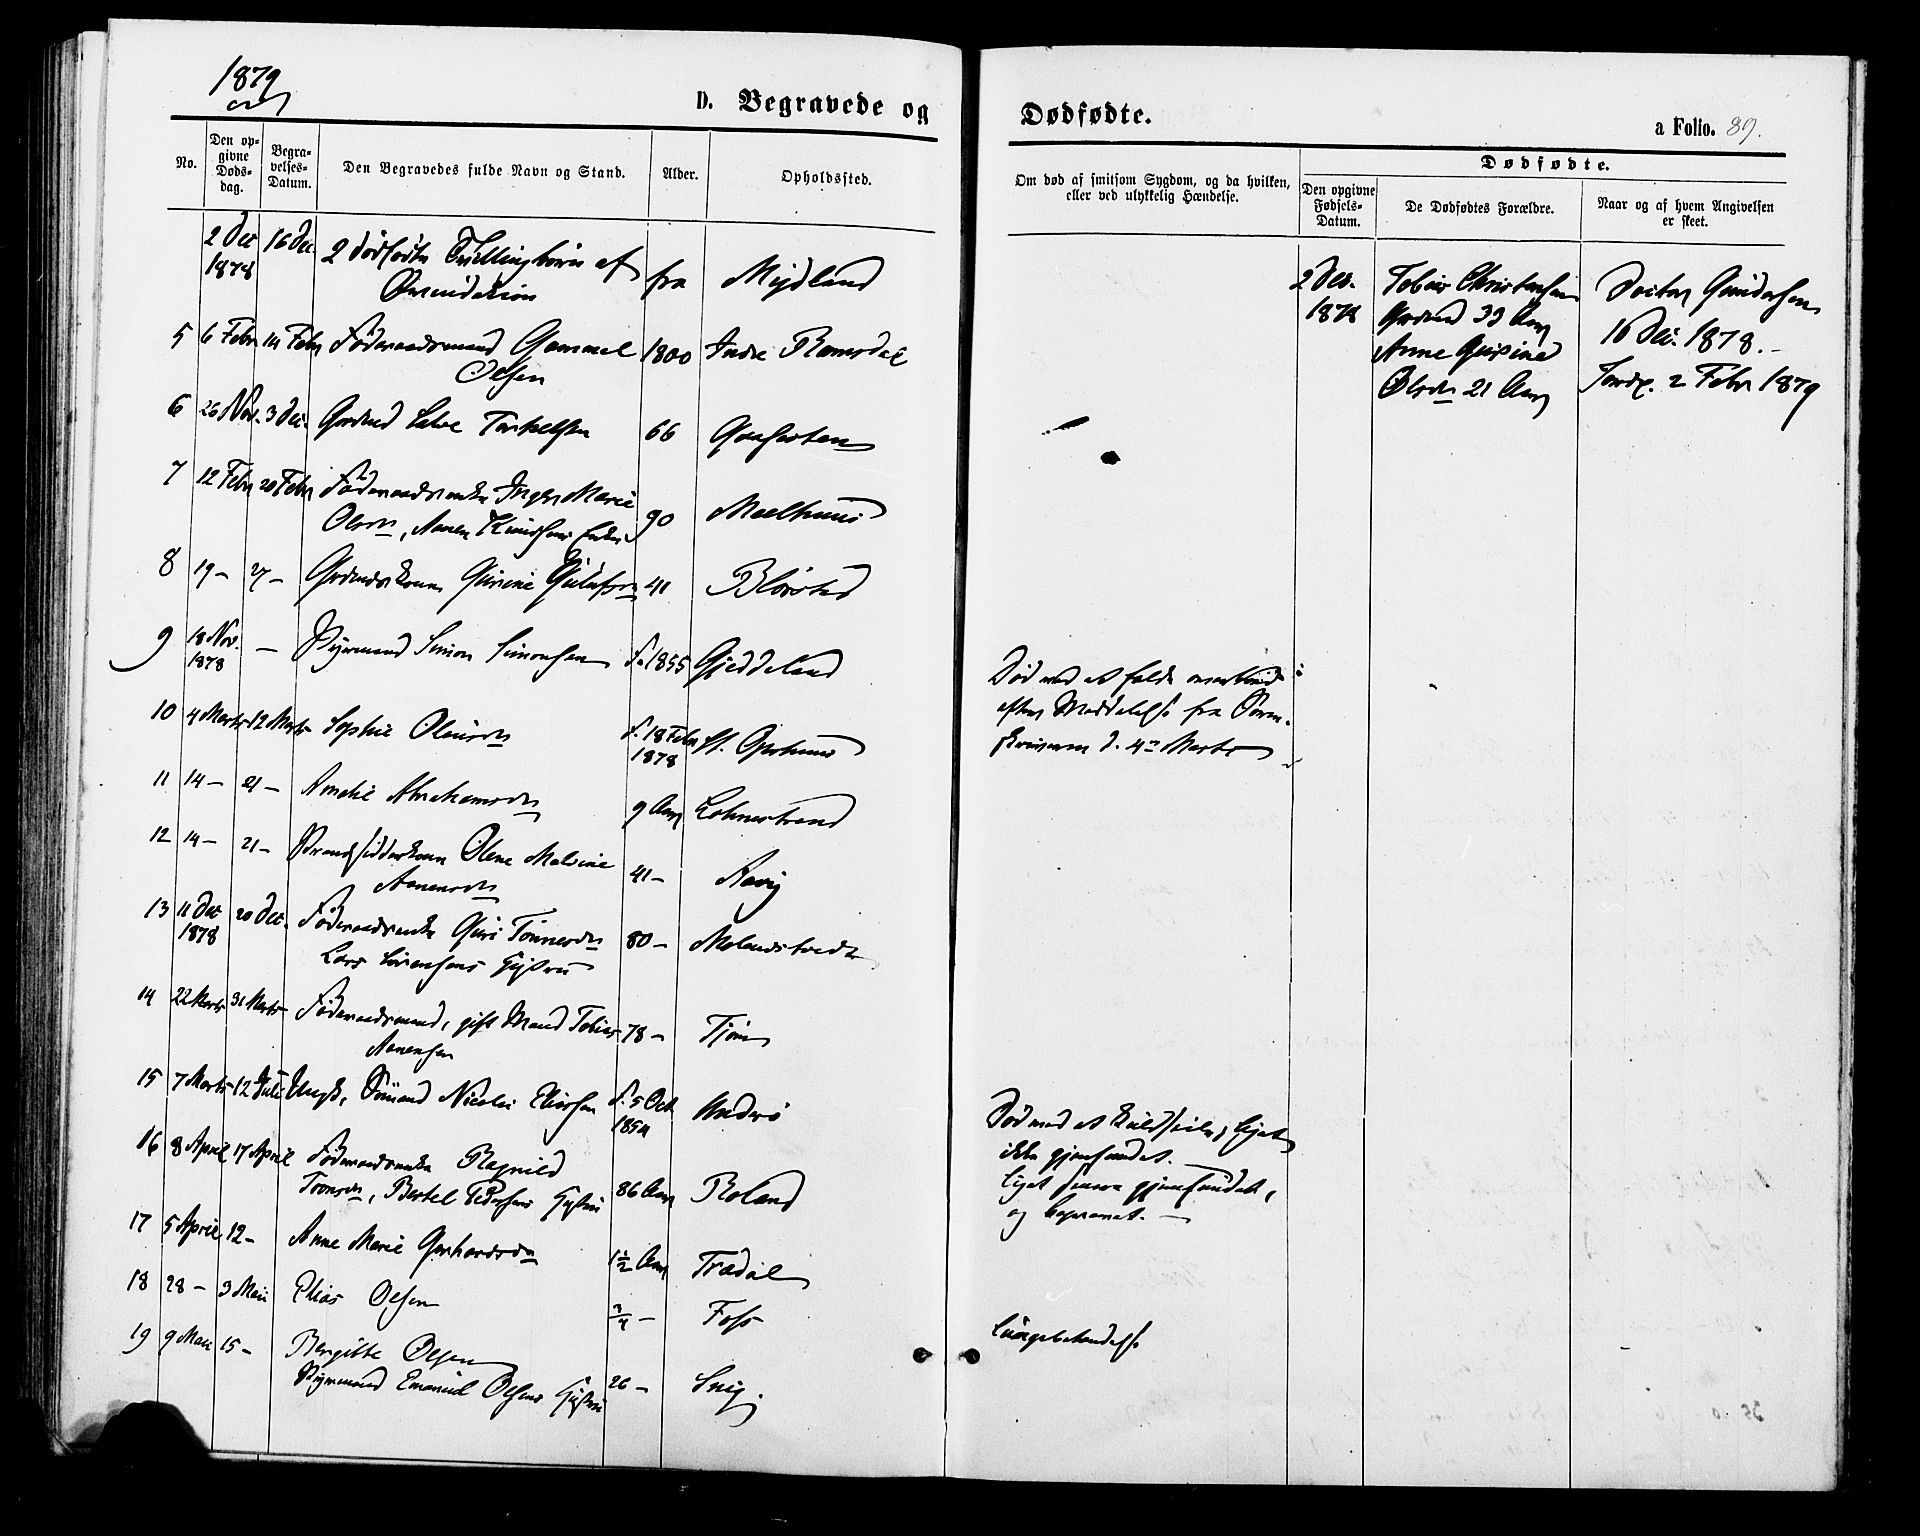 1879
D. Begravede og
Dødfødte.
a Folio. 89.
No.
Den opgivne Dødsdag.
Begravelses-Datum.
Den Begravedes fulde Navn og Stand.
Alder.
Opholdssted.
Om død af smitsom Sygdom, og da hvilken,
eller ved ulykkelig Hændelse.
Dødfødte.
Den opgivne Fødsels-Datum.
De Dødfødtes Forældre.
Naar og af hvem Angivelsen
er skeet.
2 Dec 16 Dec. 2 dødfødte Tvillingbørn af fra Mydland
1878
2 Dec. Tobias Christensen
1878 Grdmd 33 Aar
Anne Gurine
Olsdr 21 Aar
Doctor Gundersen
16 Dec. 1878.
2 Febr 1879
5 6 Febr 14 Febr Føderaadsmand Gammel 1800 Indre Ramsdal
Olsen
6 26 Nov. 3 Dec. Grdmd Salve Torkelsen 66
7 12 Febr 20 Febr Føderaadsenke Inger Marie 90 Moelhuus
Olsdr, Aanen Knudsens Enke
8 19 - 27 - Grdmdskone Gurine 41 Blørstad
9 18 Nov. - Pigemand Simon Simonsen f. 1855 Gjeddeland
1878
Død ved at falde overbord
efter Meddelelse fra Soren-
skriveren d. 4de Marts
10 4 Marts 12 Marts Sophie Olausdr f. 18 Febr St.
1878
11 14 - 21 - Amalie Abrahamsdr 9 Aar Lohnestrand
12 14 - 21 - Strandsidderkone Olene Malvine 41 - Aavig
Aanensdr
13 11 Dec 20 Dec. Føderaadsenke Guri Tønnesdr 80 -
1878 Lars Sørensens
14 22 Marts 31 Marts Føderaadsmand, gift Mand Tobias 78 - Tjøm
Aanensen
15 7 Marts 12 Juli Ungk. Sømand Nicolai Eliassen f. 5 Oct. Underø
1854
Død ved at kuldseile, Liget
ikke gjenfundet.
Liget senere gjenfundet,
og begravet. -
16 8 April 17 April Føderaadsenke Ragnild 86 Aar Roland
Tronsdr, Bertel Pedersens
17 5 April 12 - Anne Marie Gerhardsdr 1½ Aar Trædal
18 28 - 3 Mai Elias Olsen ¾ - Foss
19 9 Mai 15 - Bergitte Olsen
Emanuel Olsens 26 - Snig.
Lungebetændelse